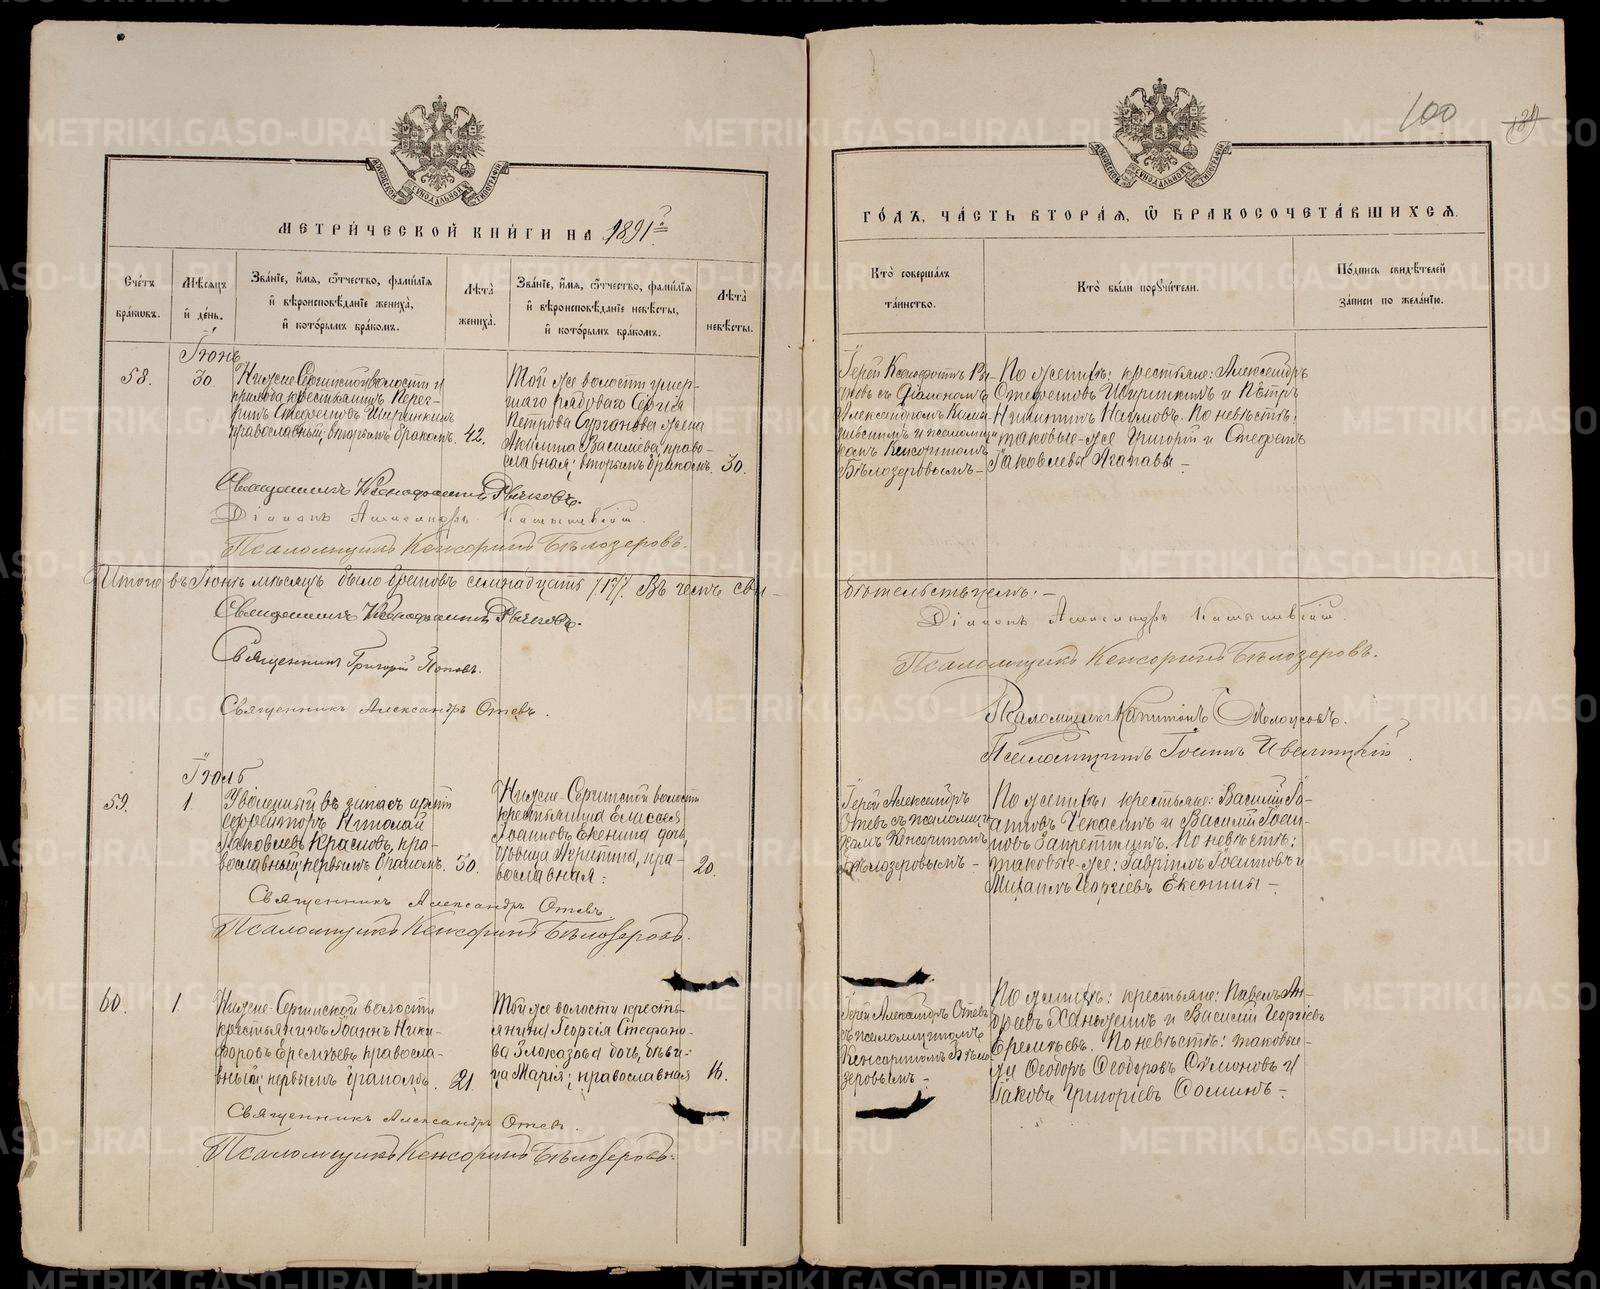 100
МЕТРИ́ЧЕСКОЙ КНИ́ГИ НА 1891 го
ГО́ДЪ, ЧА́СТЬ ВТОРА́Я, Ѿ БРАКОСОЧЕТА́ВШИХСЯ.
Счетъ
бра́ковъ.
Мѣсяцъ
и҆ де́нь.
Зва́нїе, и҆́мя, ѻ҆́тчество, фами́лїѧ
и҆ вѣроисповѣ́данїе жениха̀,
и҆ кото́рымъ бра́комъ.
Лѣта̀
жениха̀.
Зва́нїе, и҆́мя, ѻ҆́тчество, фами́лїѧ
и҆ вѣроисповѣ́данїе невѣ́сты,
и҆ кото́рымъ бра́комъ.
Лѣта̀
невѣ́сты.
Кто̀ соверша́лъ
та́инство.
Кто̀ бы́ли порꙋчи́тели.
По́дпись свидѣ́телей
за́писи по жела́нїю.
Іюнь
58.
30.
Нижне-Сергинской волости и
православный, вторымъ бракомъ.
42.
Той же волости умер-
шаго рядоваго Сергѣя
Петрова Сурганова жена
Васильева, право-
славная, вторымъ бракомъ.
30.
Іерей Ксенофонтъ Ры-
чковъ съ Діакономъ
Александромъ
и псаломщи-
комъ Кенсориномъ
Бѣлозеровымъ –
По женихѣ: крестьяне: Александръ
Стефановъ Ширинкинъ и Петръ
Никитинъ Наумовъ. По невѣстѣ:
таковые-же Григорій и Стефанъ
Яковлевы Агапавы –
Священникъ Ксенофонтъ Рычковъ.
Діаконъ Александръ
Псаломщикъ Кенсоринъ Бѣлозеровъ.
Итого въ Іюнѣ мѣсяцѣ было браковъ семнадцать /17/. Въ чемъ сви-
дѣтельствуемъ: –
Священникъ Ксенофонтъ Рычковъ.
Священникъ Григорій Поповъ.
Священникъ Александръ Отевъ.
Діаконъ Александръ
Псаломщикъ Кенсоринъ Бѣлозеровъ.
Псаломщикъ Капитонъ
Псаломщикъ Іоаннъ
Іюль
59.
1.
Уволенный въ запасъ арміи
ефрейторъ Николай
Яковлевъ Красновъ, пра-
вославный, первымъ бракомъ.
30.
Нижне-Сергинской волости
крестьянина Елисея
Іоаннова Екенина дочь,
дѣвица пра-
вославная:
20.
Іерей Александръ
Отевъ съ псаломщи-
комъ Кенсориномъ
Бѣлозеровымъ –
По женихѣ: крестьяне: Василій
и Василій Іоан-
новъ Запретилинъ. По невѣстѣ:
таковые-же: Гавріилъ Іоанновъ и
Михаилъ Георгіевъ Екенины –
Священникъ Александръ Отевъ.
Псаломщикъ Кенсоринъ Бѣлозеровъ.
60.
1.
Нижне-Сергинской волости
крестьянинъ Іоаннъ Ники-
форовъ Еремѣевъ, правосла-
вный; первымъ бракомъ.
21.
Той же волости кресть-
янина Георгія Стефано-
ва Злоказова дочь, дѣви-
ца Марія; православная
16.
Іерей Александръ Отевъ
съ псаломщикомъ
Кенсориномъ Бѣло-
зеровымъ –
По женихѣ: крестьяне: Павелъ Ан-
дреевъ и Василій Георгіевъ
Еремѣевъ. По невѣстѣ: таковые-
же Ѳеодоръ Ѳеодоровъ и
Іаковъ Григоріевъ
Священникъ Александръ Отевъ.
Псаломщикъ Кенсоринъ Бѣлозеровъ.
METRIKI.GASO-URAL.RU